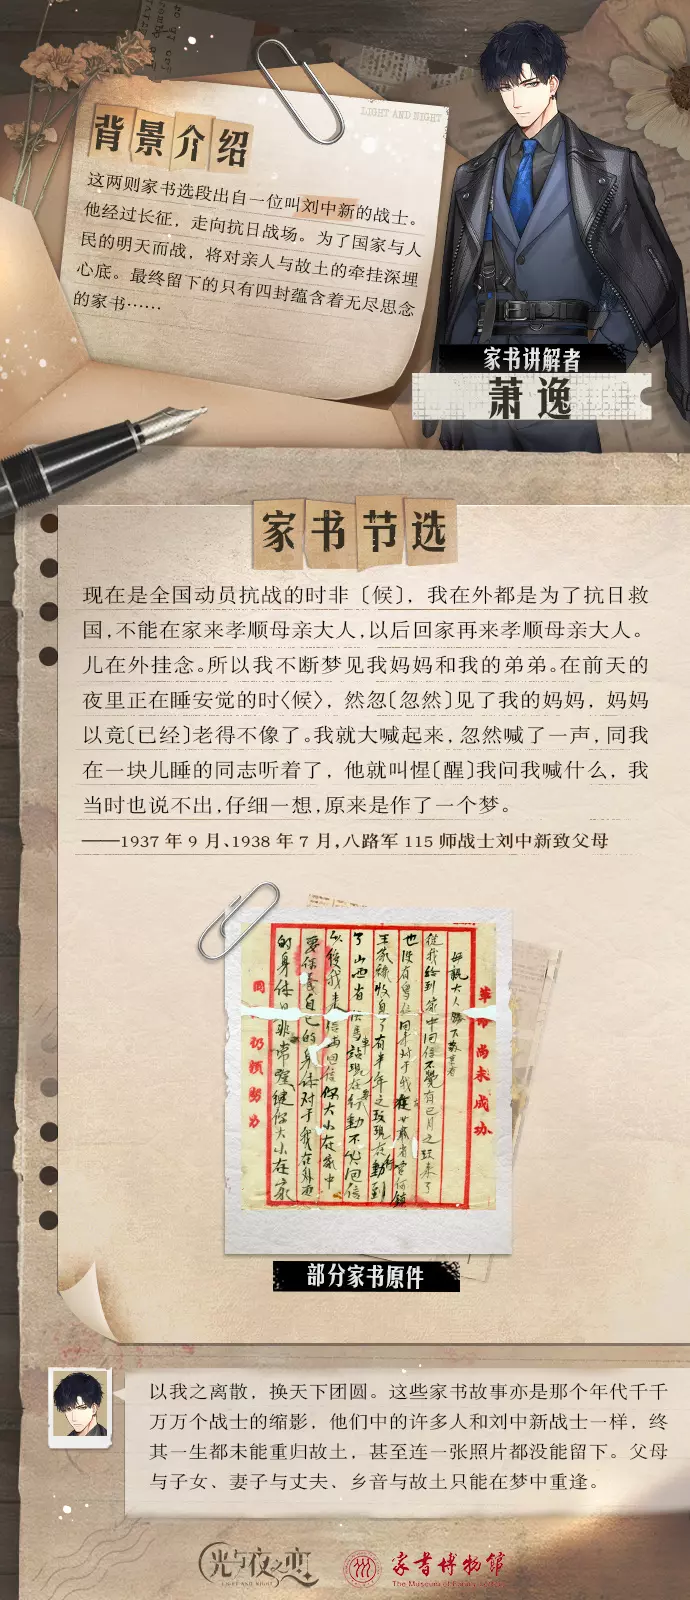 LIGHT AND NIGHT
背景介绍
这两则家书选段出自一位叫刘中新的战士。
他经过长征，走向抗日战场。为了国家与人
民的明天而战，将对亲人与故土的牵挂深埋
心底。最终留下的只有四封蕴含着无尽思念
的家书……
家书讲解者
萧逸
家书节选
现在是全国动员抗战的时非〔候〕，我在外都是为了抗日救
国，不能在家来孝顺母亲大人，以后回家再来孝顺母亲大人。
儿在外挂念。所以我不断梦见我妈妈和我的弟弟。在前天的
夜里正在睡安觉的时〈候〉，然忽〔忽然〕见了我的妈妈，妈妈
以竟〔已经〕老得不像了。我就大喊起来，忽然喊了一声，同我
在一块儿睡的同志听着了，他就叫惺〔醒〕我问我喊什么，我
当时也说不出，仔细一想，原来是作了一个梦。
——1937 年 9 月、1938 年 7 月，八路军 115 师战士刘中新致父母
革命尚未成功
母亲大人
从我给到家中回信不觉有已月之
也没有
有半年之
了山西省
的身体
仍须努力
部分家书原件
以我之离散，换天下团圆。这些家书故事亦是那个年代千千
万万个战士的缩影，他们中的许多人和刘中新战士一样，终
其一生都未能重归故土，甚至连一张照片都没能留下。父母
与子女、妻子与丈夫、乡音与故土只能在梦中重逢。
光与夜之恋
LIGHT AND NIGHT
家书博物馆
The Museum of Family Letters